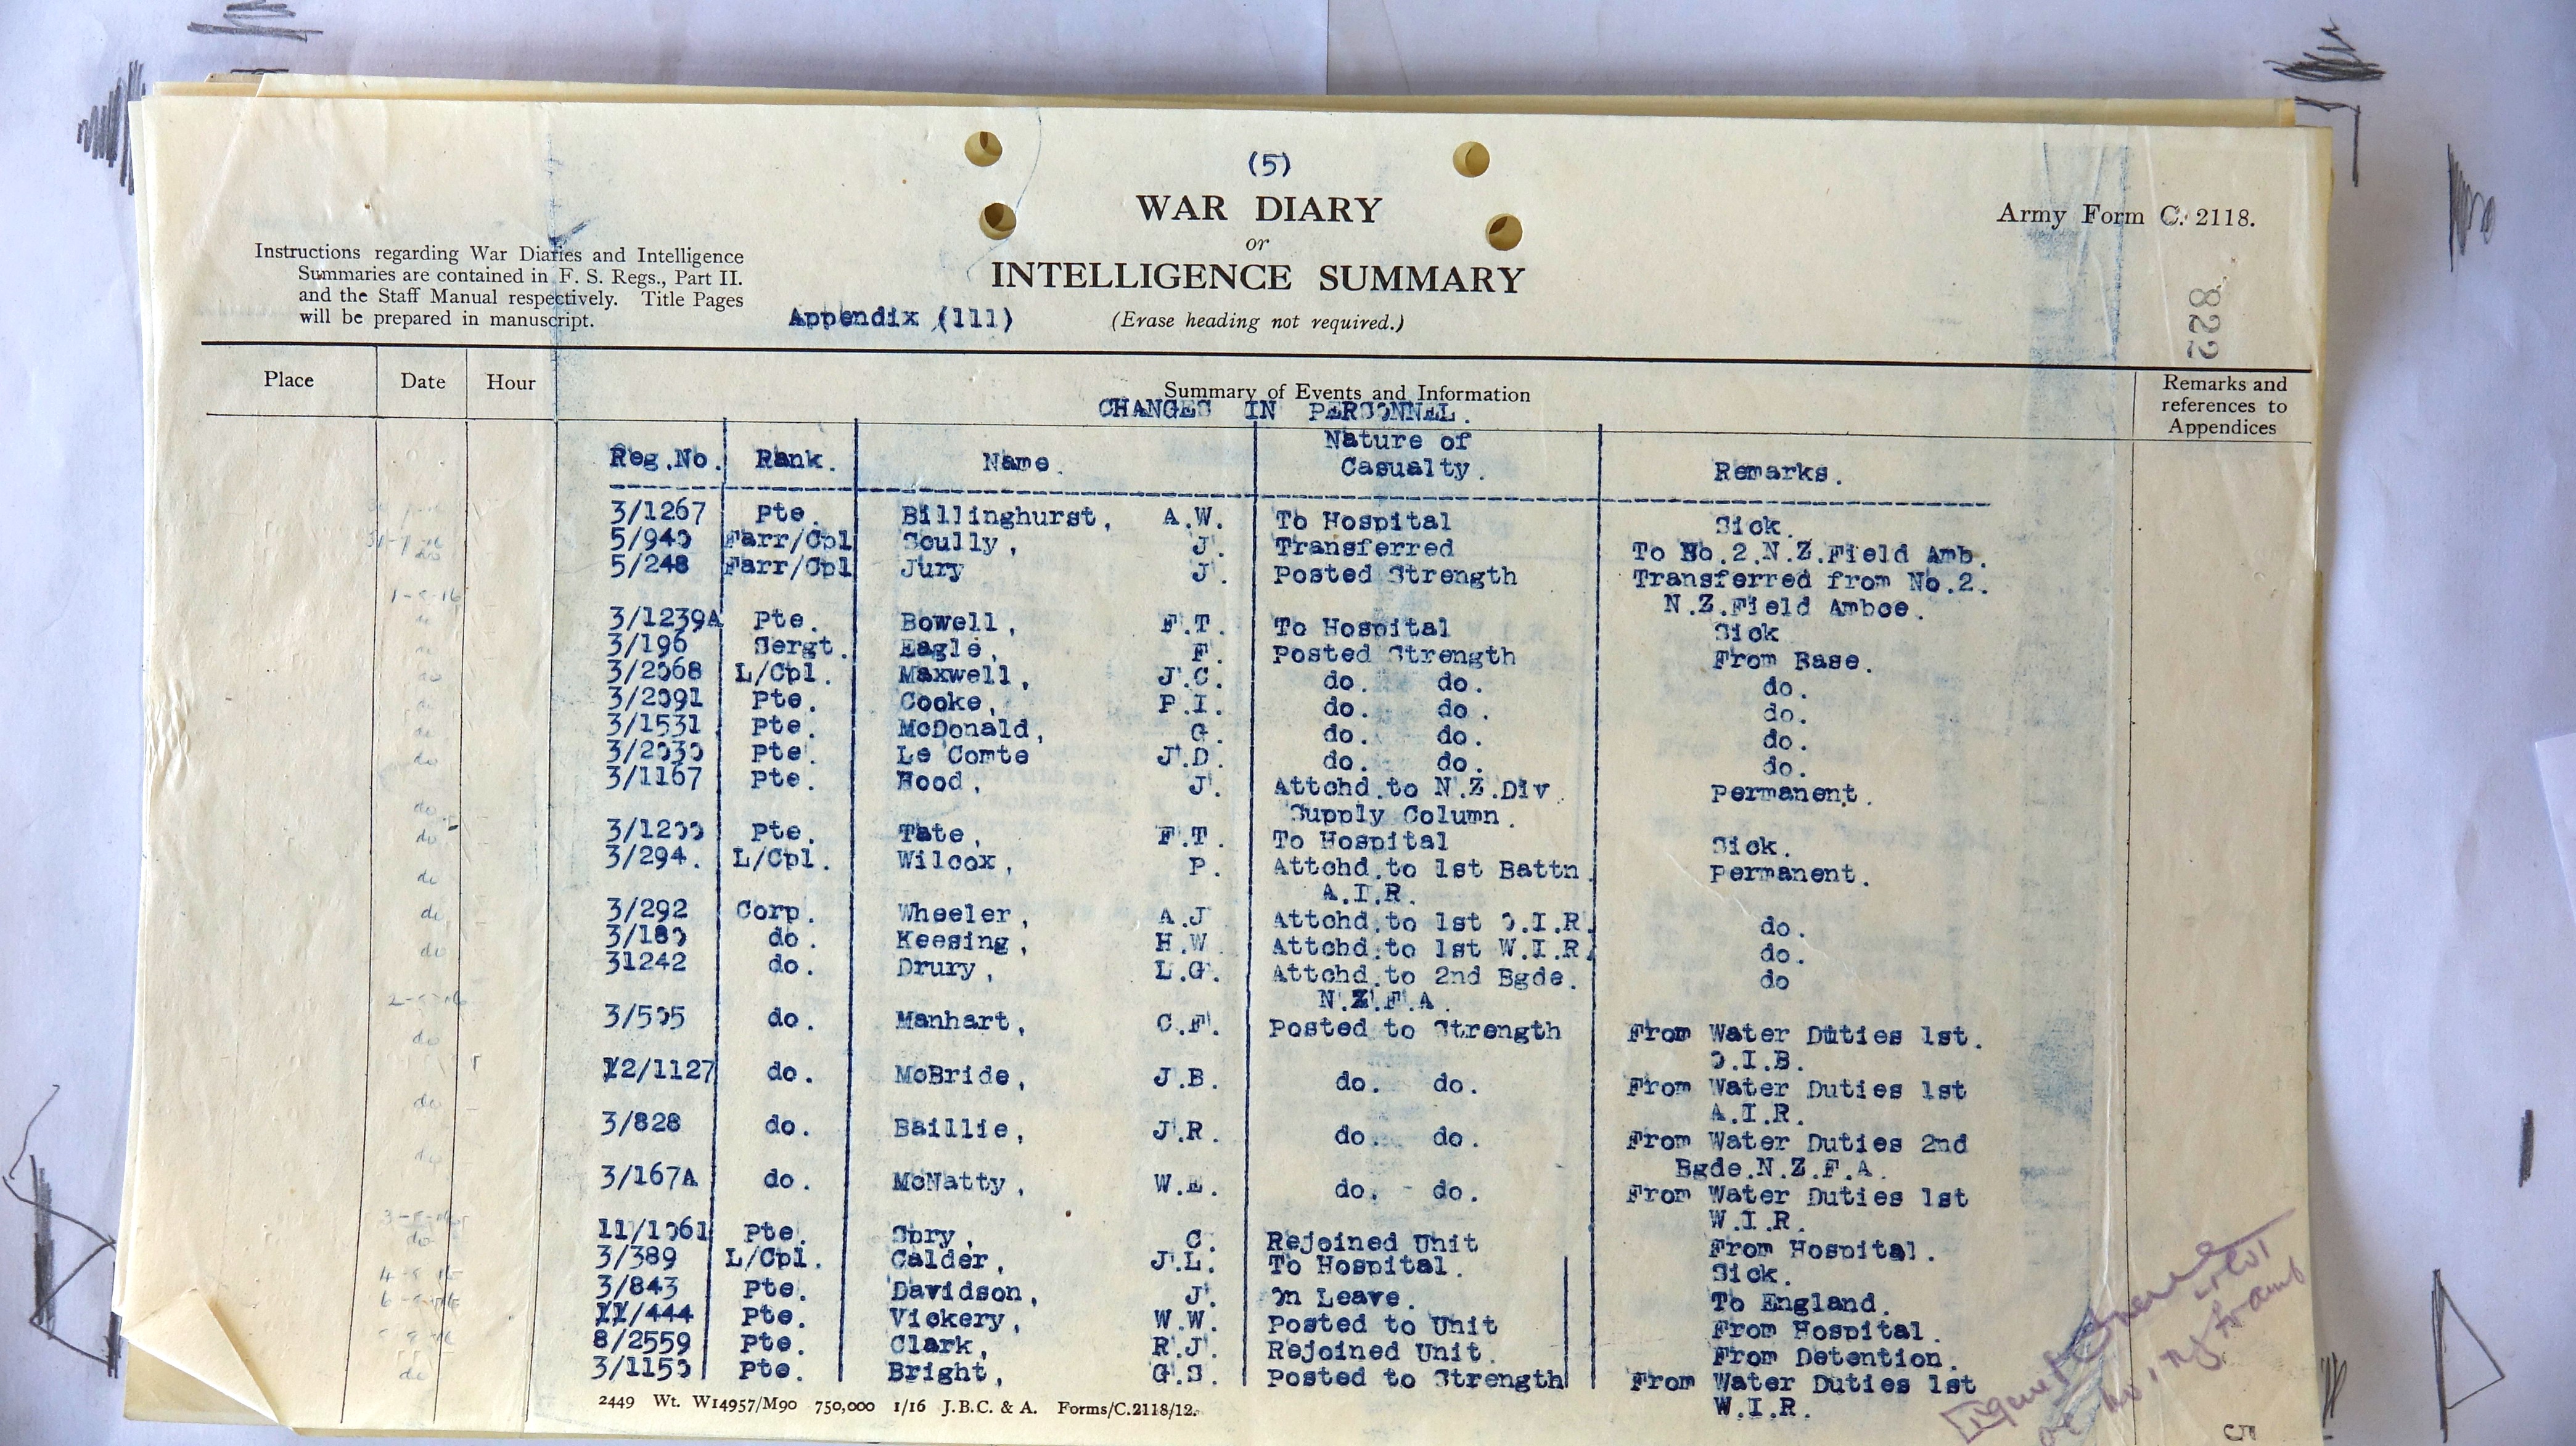 (5)
WAR DIARY
or
INTELLIGENCE SUMMARY
(Erase heading not required.)
Army Form C. 2118.
Instructions regarding War Diaries and Intelligence
Summaries are contained in F. S. Regs., Part II.
and the Staff Manual respectively. Title Pages
will be prepared in manuscript.
Appendix (111)
822
Place Date Hour Summary of Events and Information Remarks and
references to
Appendices
CHANGES IN PERSONNEL.
Reg.No. Rank. Name. Nature of
Casualty. Remarks.
3/1267 Pte. Billinghurst, A.W. To Hospital Sick.
5/940 Farr/Cpl Scully, J. Transferred To No.2.N.Z.Field Amb.
5/248 Farr/Cpl Jury J. Posted Strength Transferred from No.2.
N.Z.Field Ambce.
3/1239A Pte. Bowell, F.T. To Hospital Sick
3/196 Sergt. Eagle, F. Posted Strength From Base.
3/2068 L/Cpl. Maxwell, J.C. do. do. do.
3/2091 Pte. Cooke, P.I. do. do. do.
3/1531 Pte. McDonald, G. do. do. do.
3/2030 Pte. Le Comte J.D. do. do. do.
3/1167 Pte. Hood, J. Attchd.to N.Z.Div. Permanent.
Supply Column.
3/1200 Pte. Tate, F.T. To Hospital Sick.
3/294. L/Cpl. Wilcox, P. Attchd.to 1st Battn. Permanent.
A.I.R.
3/292 Corp. Wheeler, A.J Attchd.to 1st O.I.R. do.
3/180 do. Keesing, H.W Attchd.to 1st W.I.R. do.
31242 do. Drury, L.G. Attchd.to 2nd Bgde. do
N.Z.F.A.
3/505 do. Manhart, C.F. Posted to Strength From Water Duties 1st.
O.I.B.
12/1127 do. McBride, J.B. do. do. From Water Duties 1st
A.I.R.
3/828 do. Baillie, J.R. do. do. From Water Duties 2nd
Bgde.N.Z.F.A.
3/167A do. McNatty, W.E. do. do. From Water Duties 1st
W.I.R.
11/1061 Pte. Spry, C. Rejoined Unit From Hospital.
3/389 L/Cpl. Calder, J.L. To Hospital. Sick.
3/843 Pte. Davidson, J. On Leave. To England.
11/444 Pte. Vickery, W.W. Posted to Unit From Hospital.
8/2559 Pte. Clark, R.J. Rejoined Unit. From Detention.
3/1150 Pte. Bright, G.S. Posted to Strength From Water Duties 1st
W.I.R.
2449 Wt. W14957/M90 750,000 1/16 J.B.C. & A. Forms/C.2118/12.